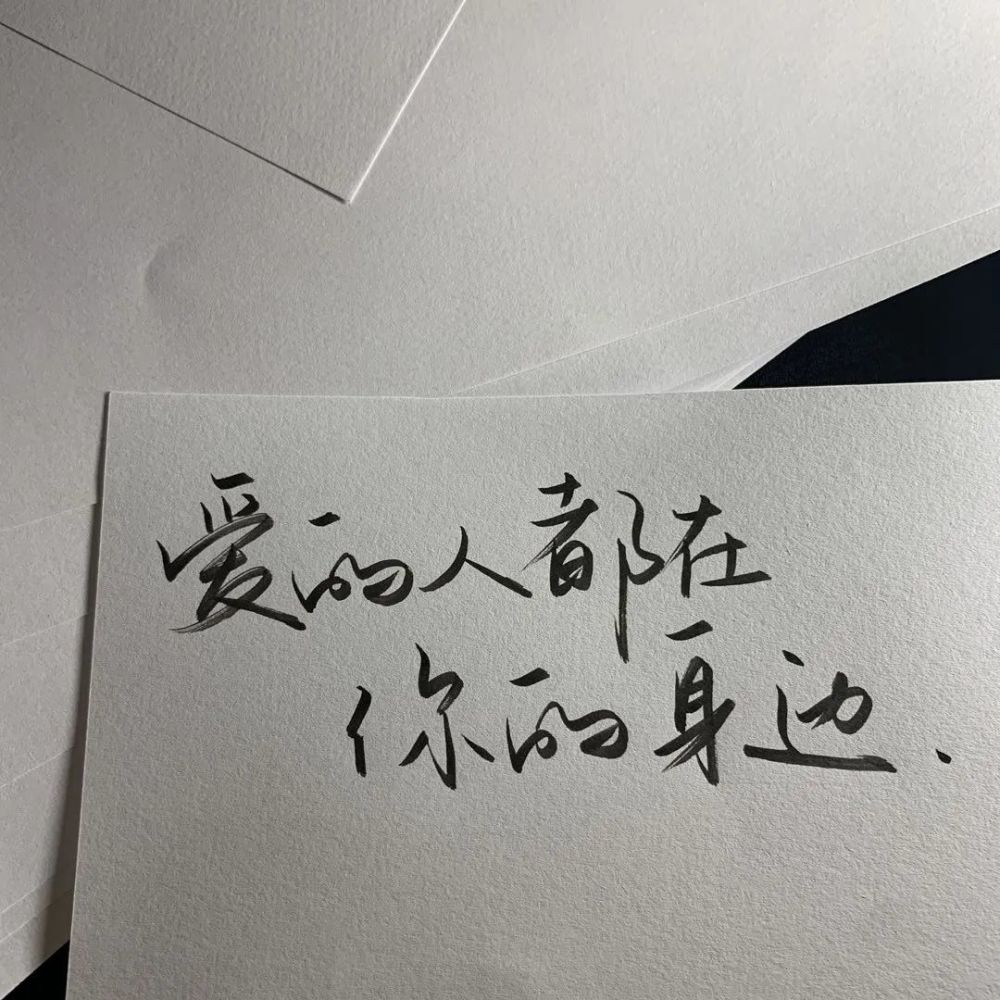 爱的人都在
你的身边.